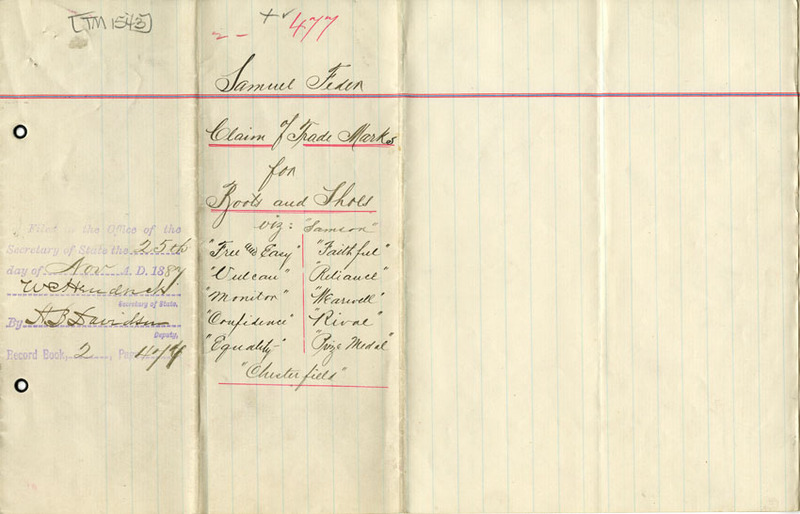 [TM 1543]
2 - 477
Samuel Feder
Claim of Trade Marks
for
Boots and Shoes
viz: "Samson"
"Free and Easy" "Faithful"
"Vulcan" "Reliance"
"Monitor" "Warwell"
"Confidence" "Rival"
"Equality" "Prize Medal"
"Chesterfield"
Filed in the Office of the
Secretary of State the 25th
day of Nov A. D. 1887
W C Hendricks
Secretary of State.
By H B Davidson
Deputy.
Record Book, 2, Page 477